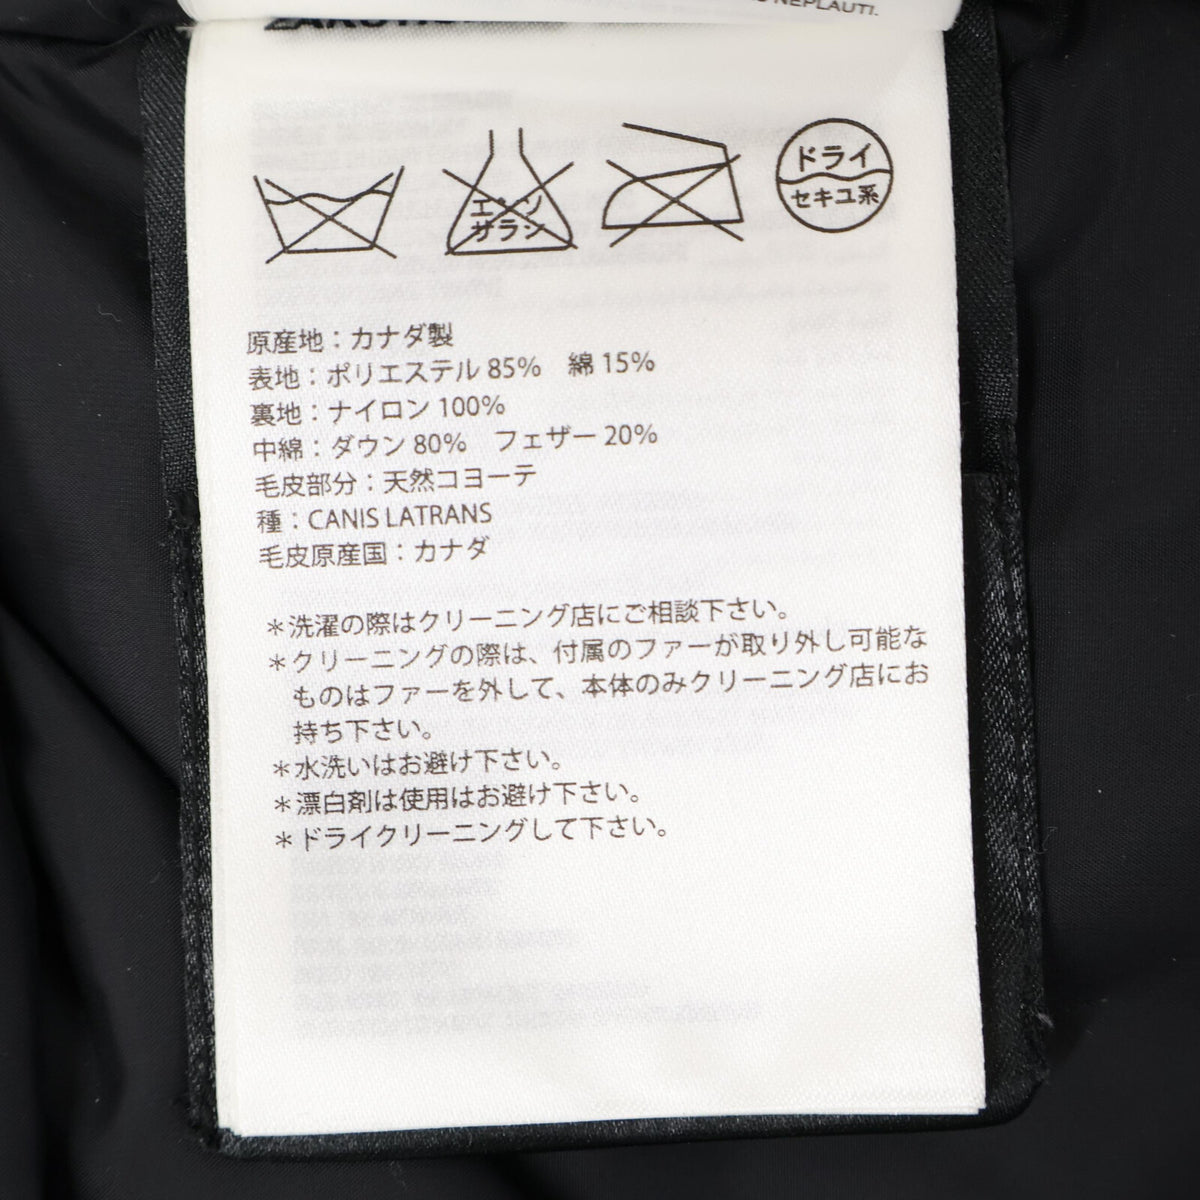 NEPLAUTI.
エンソ
サラシ
ドライ
セキユ系
原産地：カナダ製
表地：ポリエステル 85%　綿 15%
裏地：ナイロン 100%
中綿：ダウン 80%　フェザー 20%
毛皮部分：天然コヨーテ
種：CANIS LATRANS
毛皮原産国：カナダ
＊洗濯の際はクリーニング店にご相談下さい。
＊クリーニングの際は、付属のファーが取り外し可能な
ものはファーを外して、本体のみクリーニング店にお
持ち下さい。
＊水洗いはお避け下さい。
＊漂白剤は使用はお避け下さい。
＊ドライクリーニングして下さい。